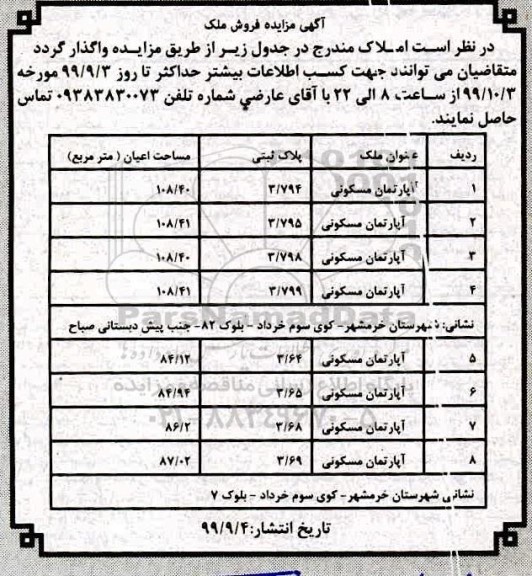 آگهی مزایده فروش ملک
در نظر است املاک مندرج در جدول زیر از طریق مزایده واگذار گردد
متقاضیان می توانند جهت کسب اطلاعات بیشتر حداکثر تا روز ۹۹/۹/۳ مورخه
۹۹/۱۰/۳ از ساعت ۸ الی ۲۲ با آقای عارضی شماره تلفن ۰۹۳۸۳۸۳۰۰۷۳ تماس
حاصل نمایند.
ردیف عنوان ملک پلاک ثبتی مساحت اعیان (متر مربع)
۱ آپارتمان مسکونی ۳/۷۹۴ ۱۰۸/۴۰
۲ آپارتمان مسکونی ۳/۷۹۵ ۱۰۸/۴۱
۳ آپارتمان مسکونی ۳/۷۹۸ ۱۰۸/۴۰
۴ آپارتمان مسکونی ۳/۷۹۹ ۱۰۸/۴۱
ParsNamadData
نشانی: شهرستان خرمشهر- کوی سوم خرداد - بلوک ۸۲- جنب پیش دبستانی صباح
۵ آپارتمان مسکونی ۳/۶۴ ۸۴/۱۲
پایگاه اطلاع رسانی مناقصه و مزایده
۶ آپارتمان مسکونی ۳/۶۵ ۸۴/۹۴
۰۲۱-۸۸۳۴۹۶۷۰-۵
۷ آپارتمان مسکونی ۳/۶۸ ۸۶/۲
۸ آپارتمان مسکونی ۳/۶۹ ۸۷/۰۲
نشانی شهرستان خرمشهر- کوی سوم خرداد - بلوک ۷
تاریخ انتشار: ۹۹/۹/۴